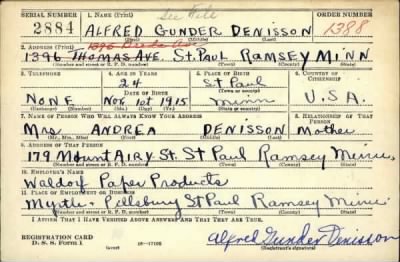 SERIAL NUMBER 1. NAME (Print) See File ORDER NUMBER
2884 ALFRED GUNDER DENISSON 1388
(First) (Middle) (Last)
2. ADDRESS (Print)
1396 THOMAS AVE. ST. PAUL RAMSEY MINN
(Number and street or R. F. D. number) (Town) (County) (State)
3. TELEPHONE 4. AGE IN YEARS 5. PLACE OF BIRTH 6. COUNTRY OF CITIZENSHIP
24 St Paul
DATE OF BIRTH (Town or county)
NONE Nov. 1st 1915 Minn U.S.A.
(Exchange) (Number) (Mo.) (Day) (Yr.) (State or country)
7. NAME OF PERSON WHO WILL ALWAYS KNOW YOUR ADDRESS 8. RELATIONSHIP OF THAT PERSON
Mrs. ANDREA DENISSON Mother
(Mr., Mrs., Miss) (First) (Middle) (Last)
9. ADDRESS OF THAT PERSON
179 MOUNT AIRY St. St Paul Ramsey Minn.
(Number and street or R. F. D. number) (Town) (County) (State)
10. EMPLOYER'S NAME
Waldorf Paper Products
11. PLACE OF EMPLOYMENT OR BUSINESS
Myrtle + Pillsbury St Paul Ramsey Minn.
(Number and street or R. F. D. number) (Town) (County) (State)
I AFFIRM THAT I HAVE VERIFIED ABOVE ANSWERS AND THAT THEY ARE TRUE.
REGISTRATION CARD
D. S. S. Form 1 (over) 16-17105 Alfred Gunder Denisson
(Registrant's signature)